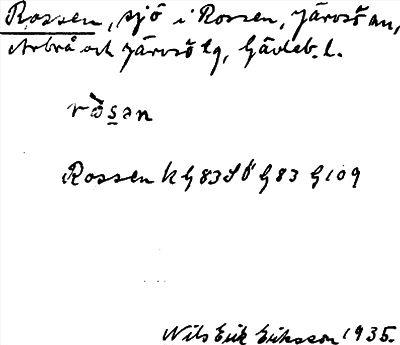 Rossen, sjö i Rossen, Järvsö an,
Arbrå och Järvsö lg, Gävleb. l.
Rossen k G 83 SÖ G 83 G 109
Nils Erik Eriksson 1935.